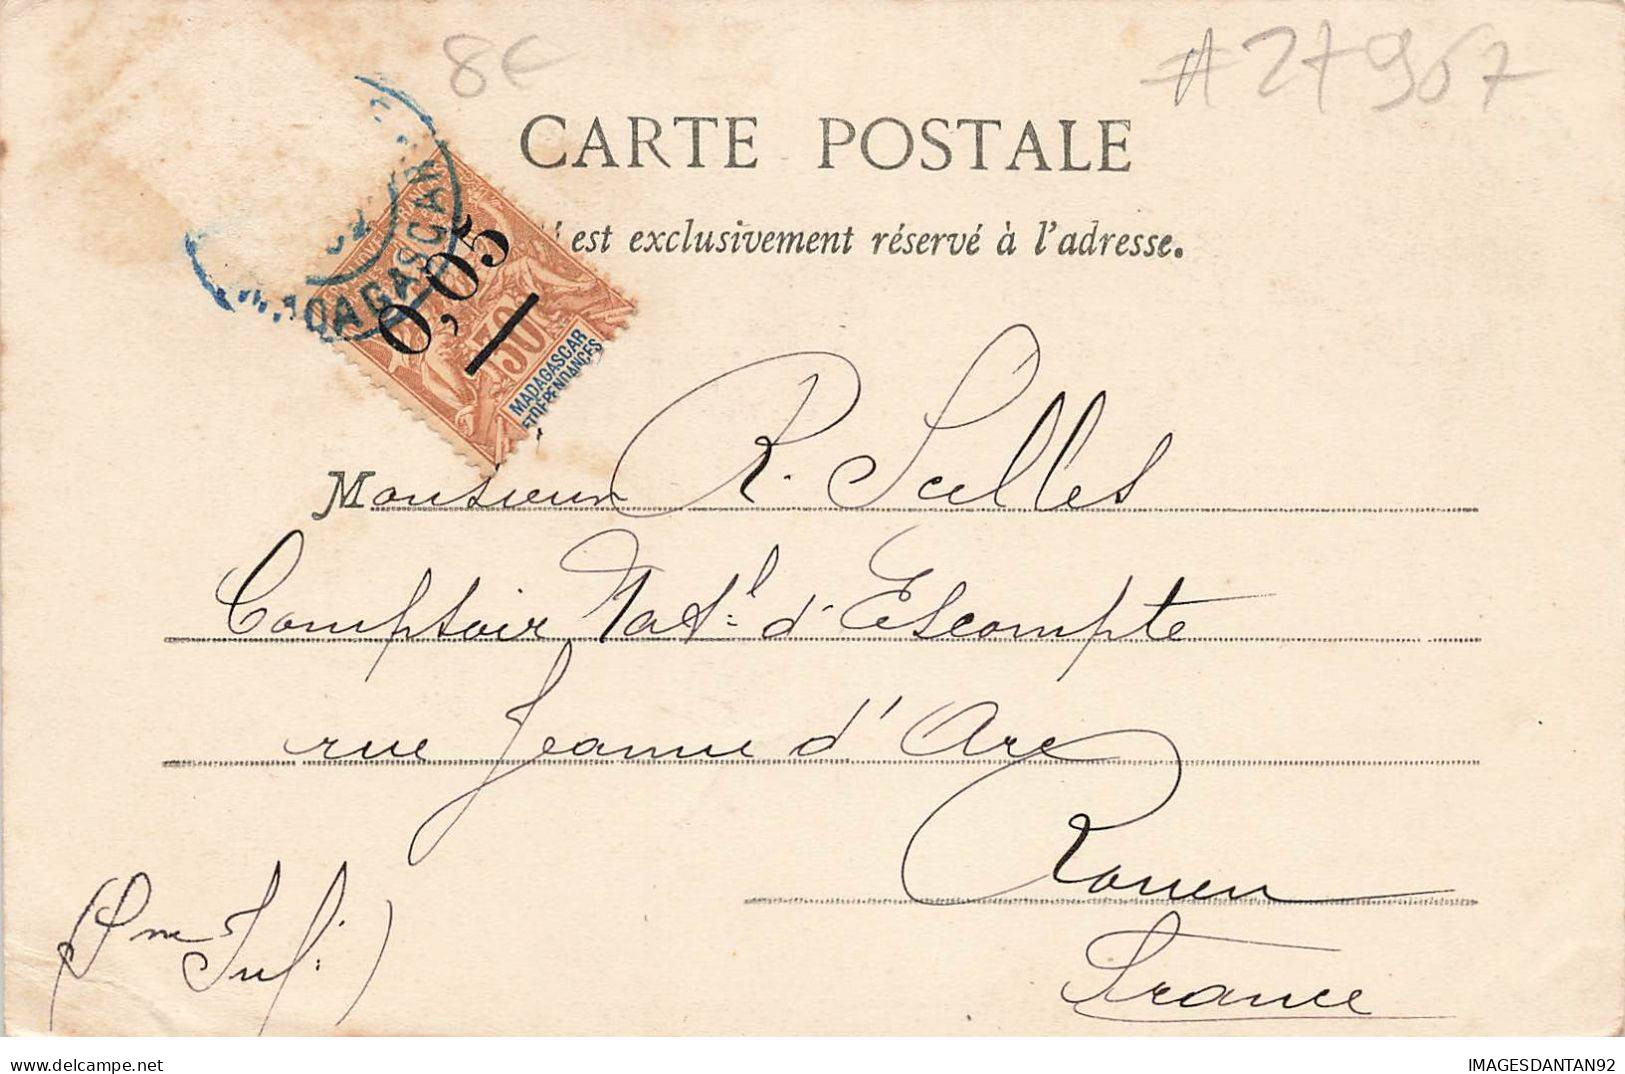 8€
#27967
CARTE POSTALE
est exclusivement réservé à l'adresse.
MADAGASCAR
0,05
30
MADAGASCAR
ET DÉPENDANCES
Monsieur R. Sulles
Comptoir Nat.l d'Escompte
rue Jeanne d'Arc
Rouen
France
IMAGESDANTAN92